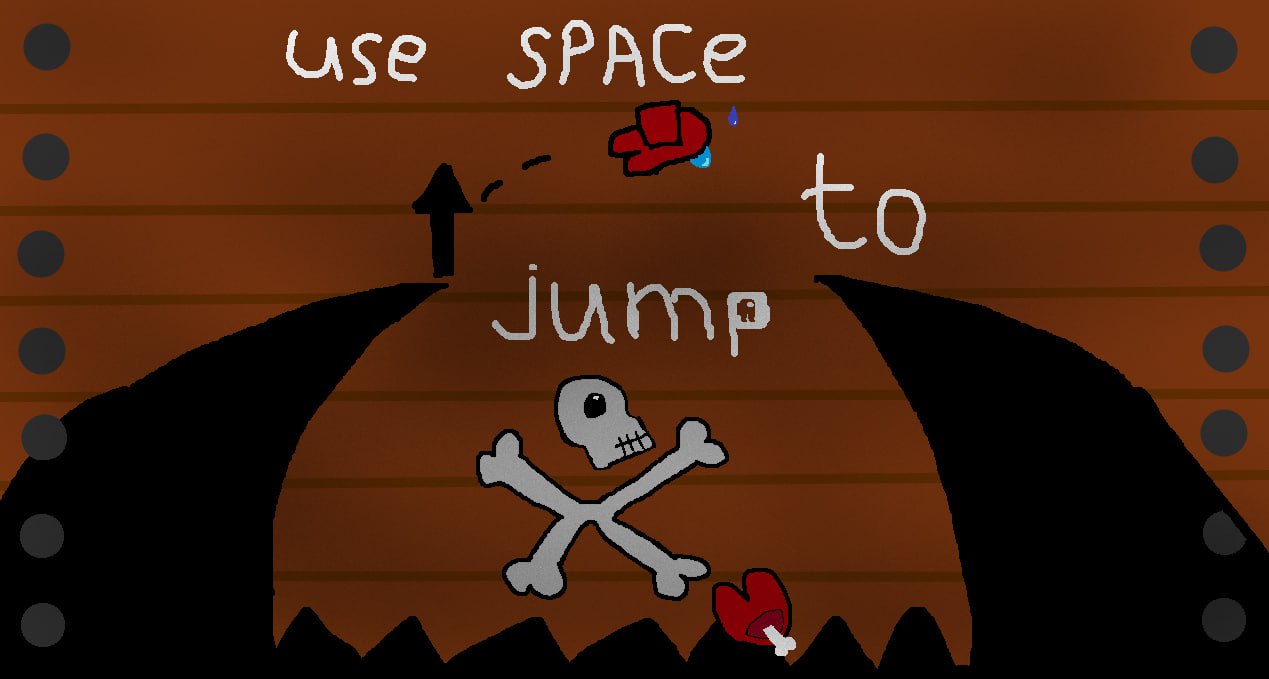 use SPACe
to
jump